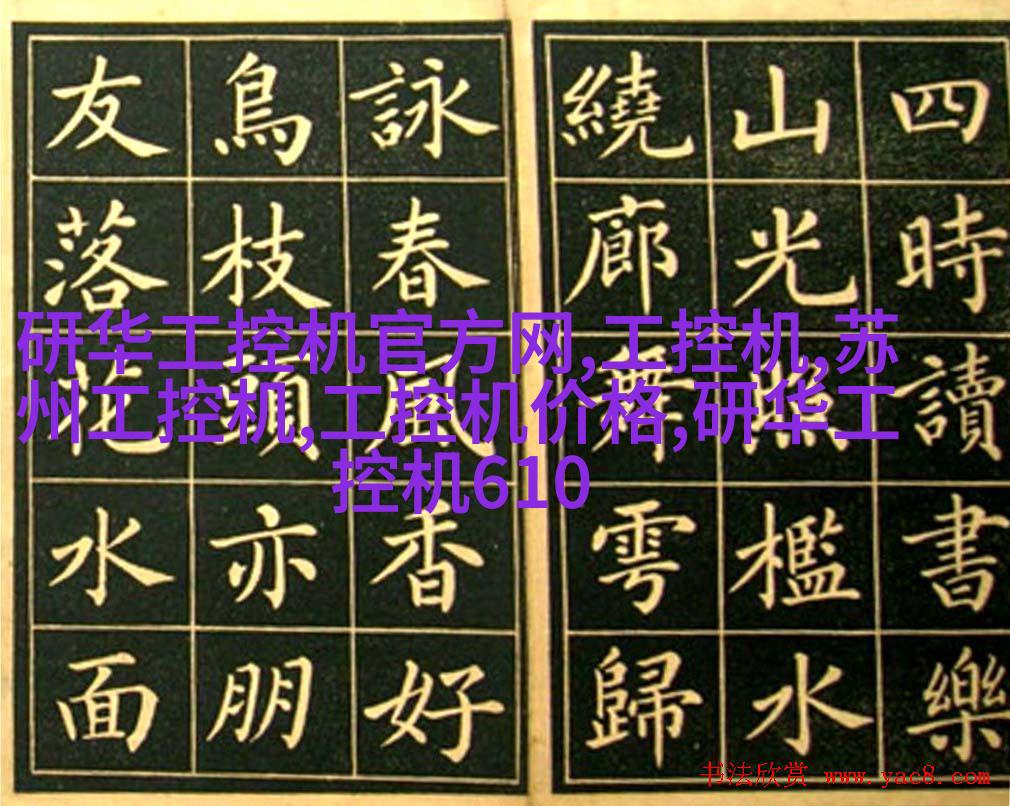 四時讀書樂
山光照檻水
繞廊舞雩歸
詠春風香好
鳥枝頭亦朋
友落花水面
研华工控机官方网,工控机,苏
州工控机,工控机价格,研华工
控机610
书法欣赏 www.yac8.com